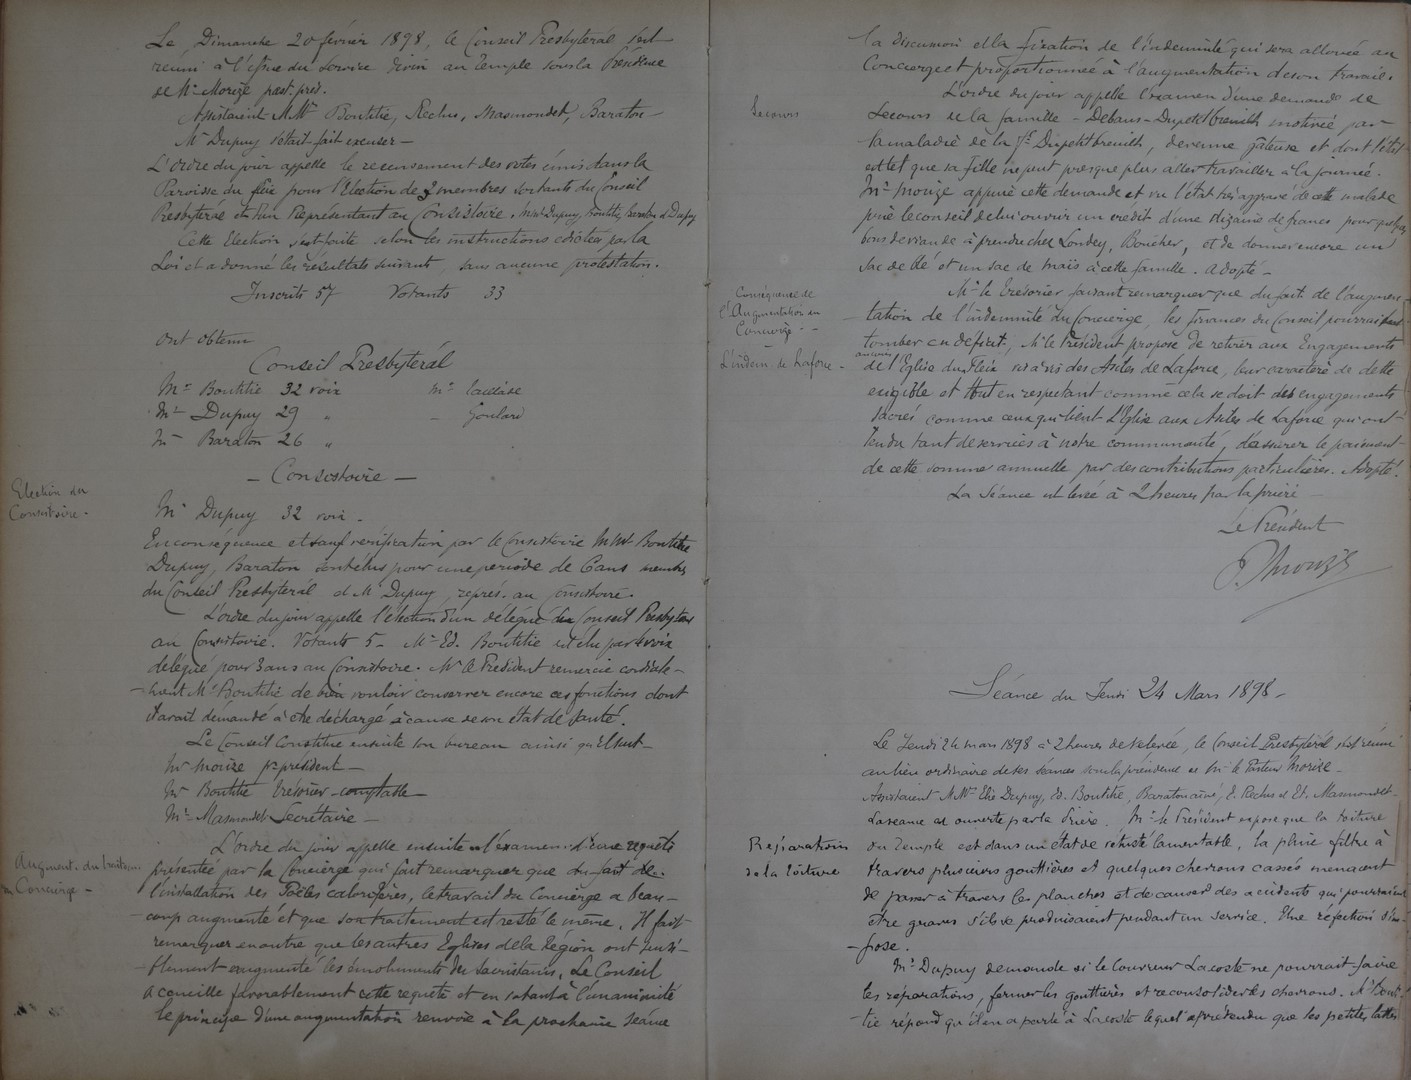 Le Dimanche 20 février 1898, le Conseil Presbyteral s'est
réuni à l'issue du Service divin au Temple sous la Présidence
de Mr Morize past. prés.
Assistaient MMrs Boutitie, Reclus, Masmondet, Baraton
Mr Dupuy s'était fait excuser —
L'ordre du jour appelle le recensement des votes émis dans la
Paroisse du pour l'Election de 3 membres sortants du Conseil
Presbytéral et d'un Représentant au Consistoire. Dupuy, Boutitie, Baraton et Dupuy
Cette Election s'est faite selon les instructions édictées par la
Loi et a donné les résultats suivants, sans aucune protestation.
Inscrits 57 Votants 33
ont obtenu
Conseil Presbytéral
Mr Boutitie 32 voix
Mr Dupuy 29 "
Mr Baraton 26 "
— Consistoire —
Election du
Consistoire -
Mr Dupuy 32 voix.
En conséquence et sauf vérification par le Consistoire MMrs Boutitie
Dupuy, Baraton sont élus pour une période de 6 ans membres
du Conseil Presbytéral et Mr Dupuy, représ. au Consistoire.
L'ordre du jour appelle l'élection d'un délégué du Conseil Presbyteral
au Consistoire. Votants 5 - Mr Ed. Boutitie est élu par voix
délégué pour 3 ans au Consistoire. Mr le Président remercie cordiale-
-ment Mr Boutitie de bien vouloir conserver encore ces fonctions dont
il avait demandé à être déchargé à cause de son état de santé.
Le Conseil Constitue ensuite son bureau ainsi qu'il suit —
Mr Morize pr président —
Mr Boutitie trésorier-comptable —
Mr Masmondet Secrétaire —
Augment. du traitem.
du Concierge -
L'ordre du jour appelle ensuite l'examen d'une requête
présentée par le Concierge qui fait remarquer que du fait de
l'installation des Poêles calorifères, le travail du Concierge a beau-
-coup augmenté et que son traitement est resté le même. Il fait
remarquer en outre que les autres Eglises de la Région ont sensi-
-blement augmenté les émoluments du Sacristain. Le Conseil
accueille favorablement cette requête et en votant à l'unanimité
le principe d'une augmentation renvoie à la prochaine séance
la discussion et la fixation de l'indemnité qui sera allouée au
Concierge et proportionnée à l'augmentation de son travail.
Secours
L'ordre du jour appelle l'examen d'une demande de
Secours de la famille Debaus-Dupetitbreuilh motivée par
la maladie de la Dupetitbreuilh, devenue gâteuse et dont l'état
est tel que sa fille ne peut presque plus aller travailler à la journée.
Mr Morize appuie cette demande et vu l'état très aggravé de cette malade
prie le conseil de lui ouvrir un crédit d'une dizaine de francs pour quelques
bons de viande à prendre chez Londey, Boucher, et de donner encore un
sac de blé et un sac de maïs à cette famille. Adopté -
Conséquence de
l'Augmentation du
Concierge - -
L'indem. de Laforce -
Mr le Trésorier faisant remarquer que du fait de l'augmen-
-tation de l'indemnité du Concierge, les finances du Conseil pourraient
tomber en déficit, Mr le Président propose de retirer aux Engagements
anciens
de l'Eglise du Fleix vis à vis des Asiles de Laforce, leur caractère de dette
exigible et tout en respectant comme cela se doit des engagements
sacrés comme ceux qui lient l'Eglise aux Asiles de Laforce qui ont
rendu tant de services à notre communauté, d'assurer le paiement
de cette somme annuelle par des contributions particulières. Adopté.
La Séance est levée à 2 heures par la prière —
Le Président
P. Morize
Séance du Jeudi 24 Mars 1898 -
Le Jeudi 24 mars 1898 à 2 heures de relevée, le Conseil Presbytéral s'est réuni
au lieu ordinaire de ses séances sous la présidence de Mr le Pasteur Morize -
Assistaient MMrs Elie Dupuy, Ed. Boutitie, Baraton aîné, E. Reclus et Et. Masmondet -
La séance est ouverte par la Prière. Mr le Président expose que la toiture
Réparations
de la toiture
du Temple est dans un état de vétusté lamentable, la pluie filtre à
travers plusieurs gouttières et quelques chevrons cassés menacent
de passer à travers les planches et de causer des accidents qui pourraient
être graves s'ils se produisaient pendant un service. Une réfection s'im-
-pose.
Mr Dupuy demande si le Couvreur Lacoste ne pourrait faire
les réparations, fermer les gouttières et reconsolider les chevrons. Mr Bouti-
-tie répond qu'il en a parlé à Lacoste lequel a prétendu que les petites lattes